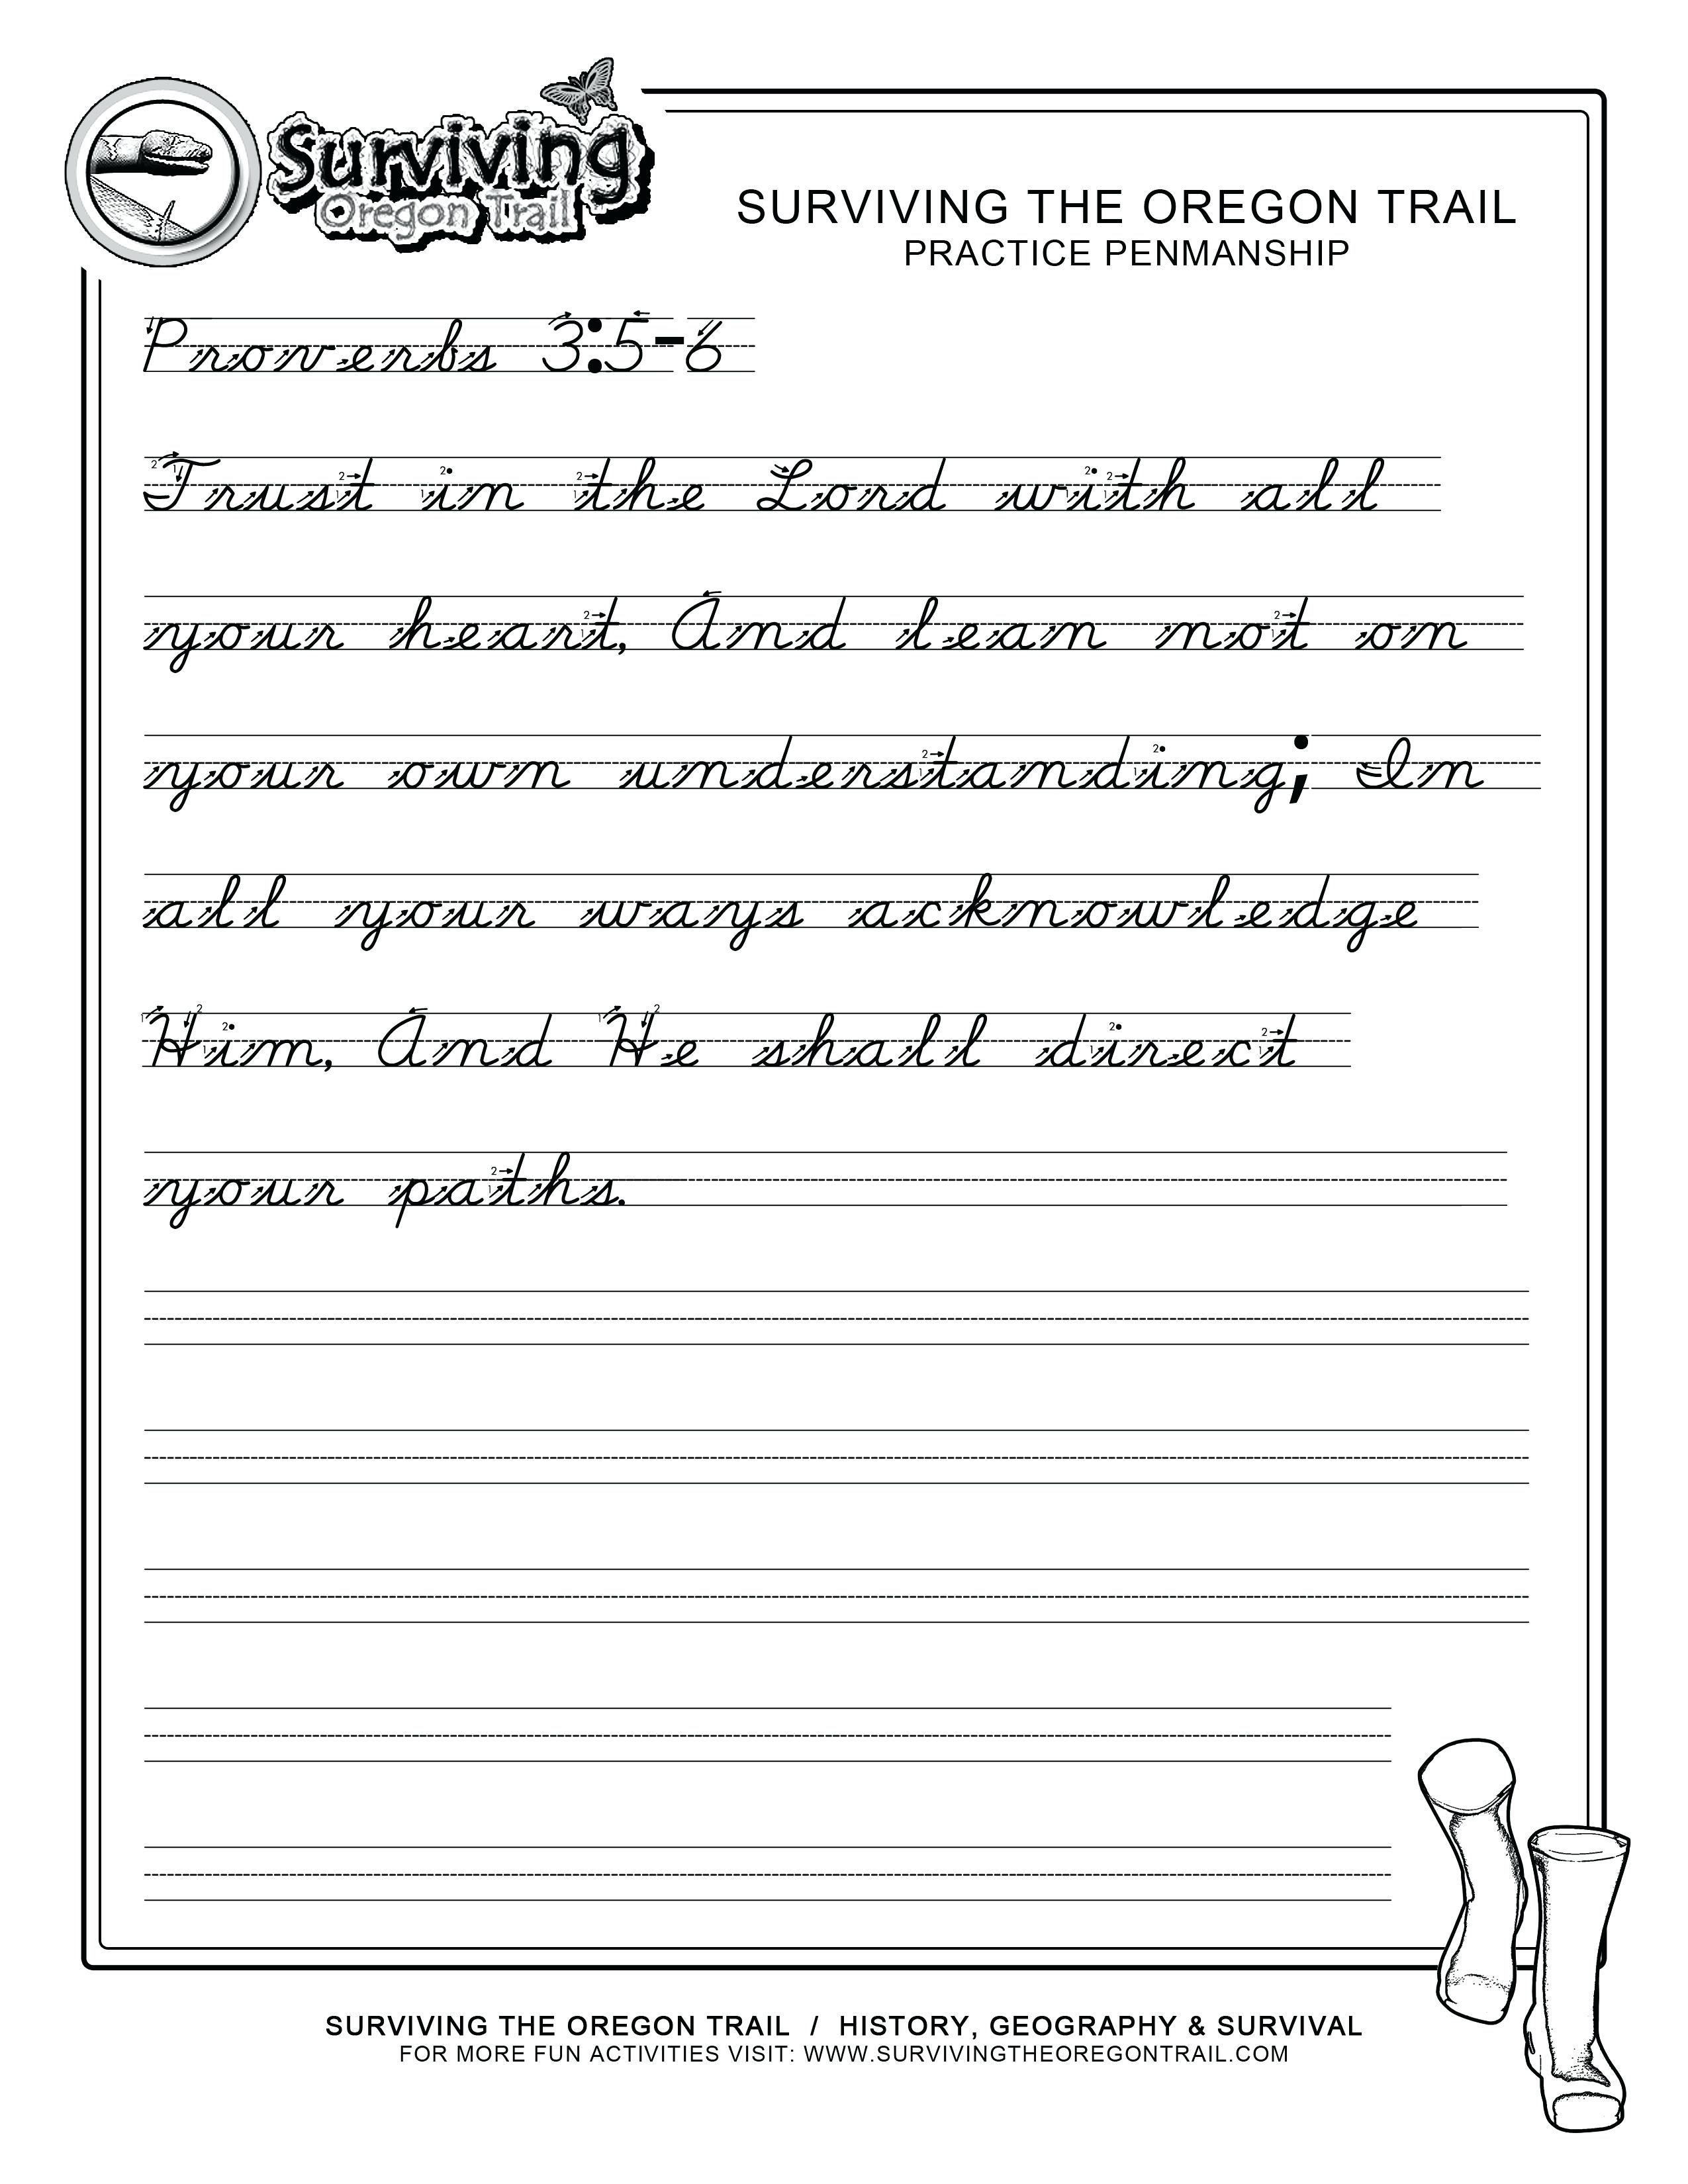 Surviving
Oregon Trail
SURVIVING THE OREGON TRAIL
PRACTICE PENMANSHIP
Proverbs 3:5-6
Trust in the Lord with all
your heart, And lean not on
your own understanding; In
all your ways acknowledge
Him, And He shall direct
your paths.
SURVIVING THE OREGON TRAIL / HISTORY, GEOGRAPHY & SURVIVAL
FOR MORE FUN ACTIVITIES VISIT: WWW.SURVIVINGTHEOREGONTRAIL.COM